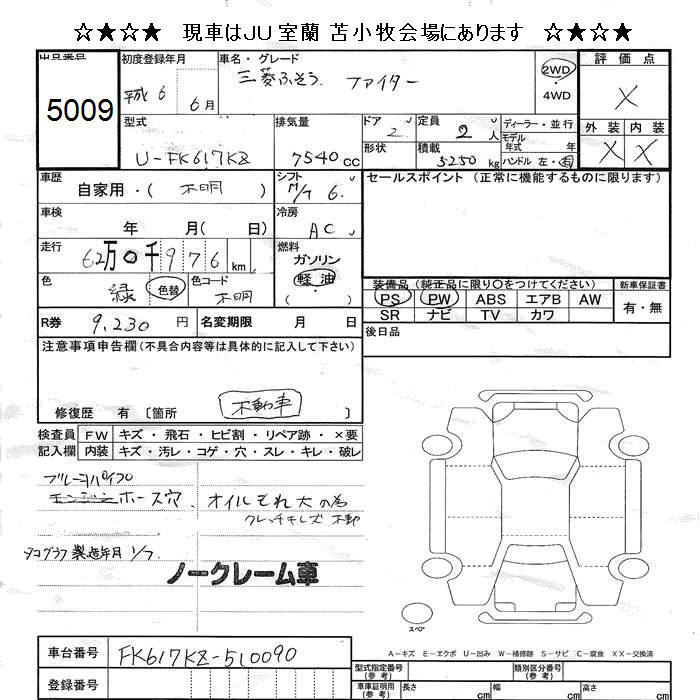 ☆★☆★ 現車はJU室蘭 苫小牧会場にあります ☆★☆★
出品番号 5009
初度登録年月 平成 6 6月
車名・グレード 三菱ふそう ファイター
2WD ・ 4WD
評価点 X
外装 内装
X X
型式 U-FK617KZ
排気量 7540 cc
ドア 2
形状
定員 2 人
積載 5250 kg
ディーラー・並行
モデル年式 年
ハンドル 左・右
車歴 自家用・( 不明 )
シフト M/T 6
セールスポイント (正常に機能するものに限ります)
車検 年 月( 日)
冷房 AC
走行 62万0千976 km
燃料 ガソリン 軽油
色 緑 色替
色コード 不明
装備品 (純正品に限り〇をつけてください)
新車保証書
PS PW ABS エアB AW
SR ナビ TV カワ
有・無
R券 9,230 円
名変期限 月 日
後日品
注意事項申告欄(不具合内容等は具体的に記入して下さい)
修復歴 有 〔箇所 不動車 〕
検査員 FW キズ・飛石・ヒビ割・リペア跡・×要
記入欄 内装 キズ・汚レ・コゲ・穴・スレ・キレ・破レ
ホース穴、オイルもれ大の為
不動
タコグラフ製造年月 1/7
ノークレーム車
スペア
A-キズ E-エクボ U-凹み W-補修跡 S-サビ C-腐食 XX-交換済
車台番号 FK617KZ-510090
登録番号
型式指定番号(参考)
類別区分番号(参考)
車庫証明用(参考) 長さ cm 幅 cm 高さ cm